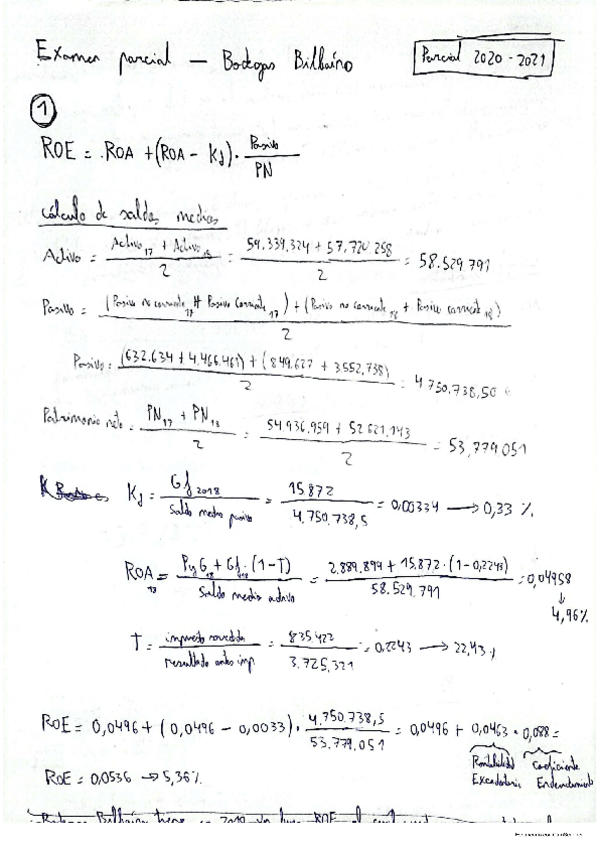 Examen parcial — Bodegas Bilbaíno
Parcial 2020-2021
1
ROE = ROA + (ROA - Kd) · Pasivo / PN
cálculo de saldos medios
Activo = Activo 17 + Activo 18 / 2 = 59.339.324 + 57.720.258 / 2 = 58.529.791
Pasivo = (Pasivo no corriente 17 + Pasivo corriente 17) + (Pasivo no corriente 18 + Pasivo corriente 18) / 2
Pasivo = (632.634 + 4.466.461) + (849.627 + 3.552,738) / 2 = 4.750.738,50 €
Patrimonio neto = PN17 + PN18 / 2 = 54.936.959 + 52.621.143 / 2 = 53,779.051
Kd = Gf 2018 / Saldo medio pasivo = 15.872 / 4.750.738,5 = 0,00334 → 0,33 %
ROA 18 = PyG 18 + Gf 18 · (1-T) / Saldo medio activo = 2.889.899 + 15.872 · (1-0,2243) / 58.529.791 = 0,04958
↓
4,96%
T = impuesto sociedades / resultado antes imp. = 835.422 / 3.725,321 = 0,2243 → 22,43%
ROE = 0,0496 + (0,0496 - 0,0033) · 4.750.738,5 / 53.779.051 = 0,0496 + 0,0463 · 0,088 =
Rentabilidad Coeficiente
Excedentaria Endeudamiento
ROE = 0,0536 → 5,36%